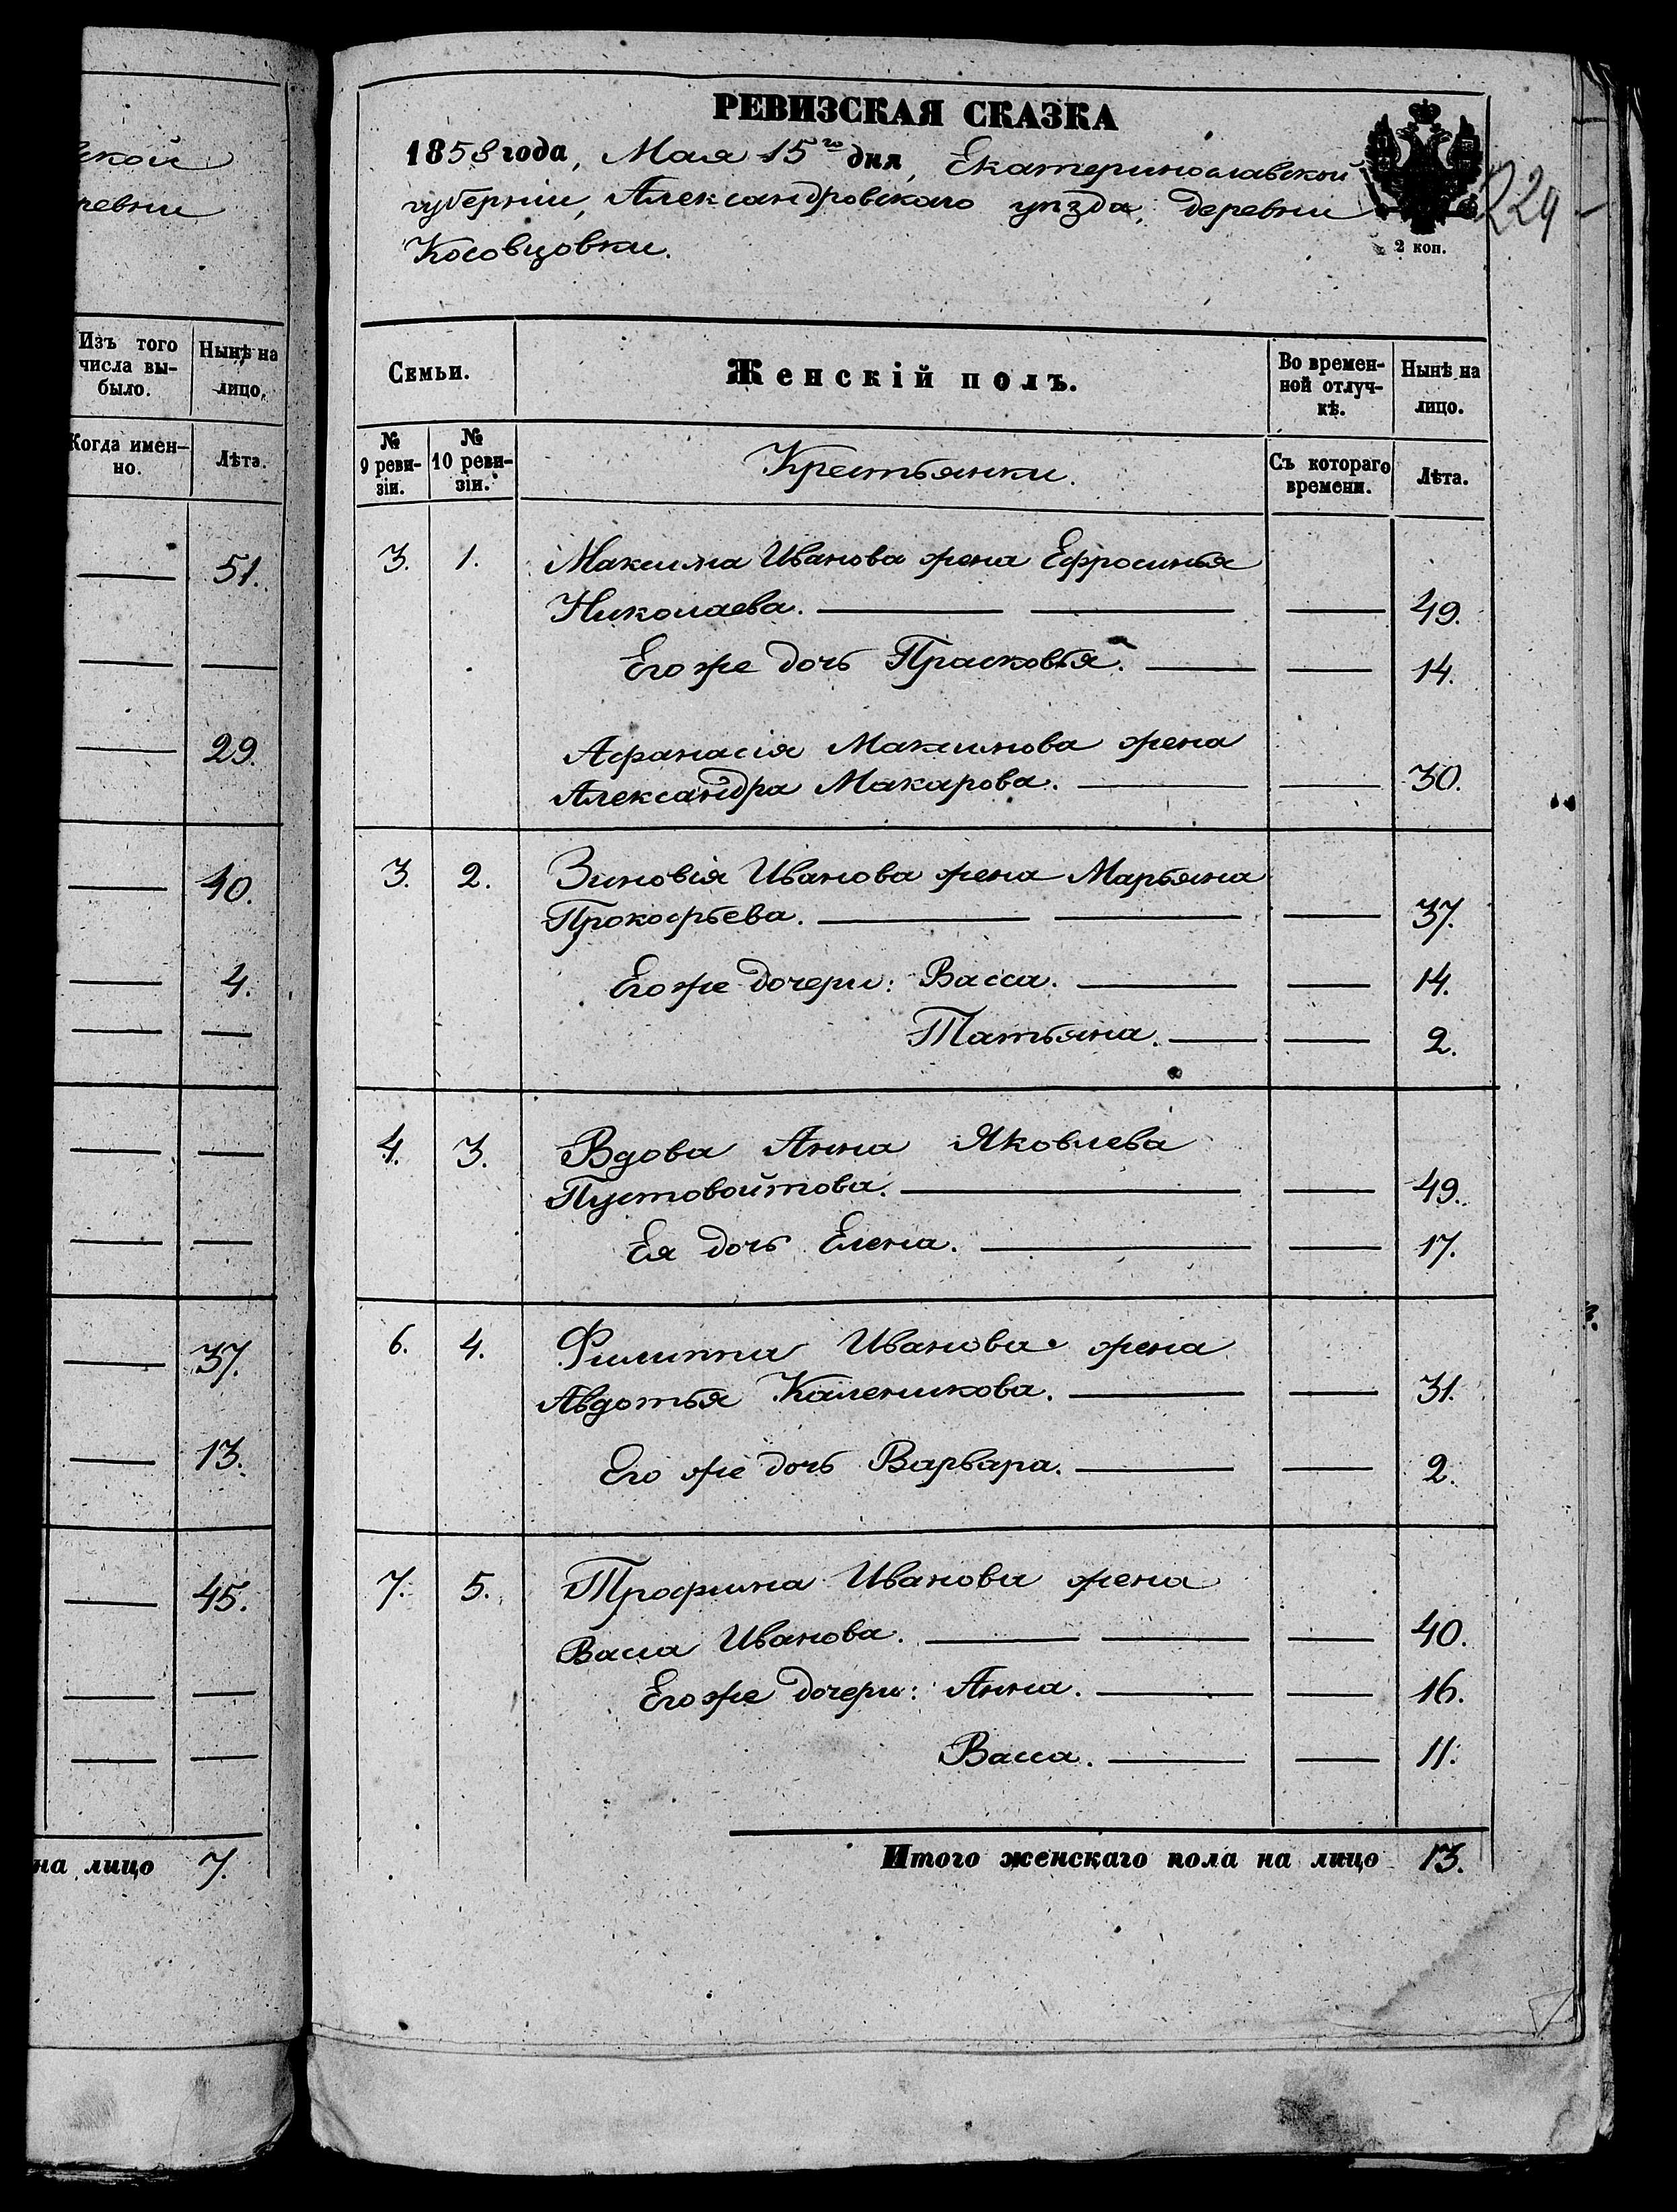 ской
ревни
Изъ того
числа вы-
было.
Нынѣ на
лицо.
Когда имен-
но.
Лѣта.
51.
29.
40.
4.
37.
13.
45.
на лицо 7.
РЕВИЗСКАЯ СКАЗКА
1858 года, Мая 15го дня, Екатеринославской
губерніи, Александровскаго уѣзда, деревни
Косовцовки.
2 коп.
229
Семьи.
Женскій полъ.
Во времен-
ной отлуч-
кѣ.
Нынѣ на
лицо.
№
9 реви-
зіи.
№
10 реви-
зіи.
Крестьянки.
Съ котораго
времени.
Лѣта.
3. 1. Максима Иванова жена Ефросинья
Николаева. 49.
Его же дочь Прасковья. 14.
Афанасія Максимова жена
Александра Макарова. 30.
3. 2. Зиновія Иванова жена Марьяна
Прокофьева. 37.
Его же дочери: Васса. 14.
Татьяна. 2.
4. 3. Вдова Анна Яковлева
Пустовойтова. 49.
Ея дочь Елена. 17.
6. 4. Филиппа Иванова жена
Авдотья Каленикова. 31.
Его же дочь Варвара. 2.
7. 5. Трофима Иванова жена
Васса Иванова. 40.
Его же дочери: Анна. 16.
Васса. 11.
Итого женскаго пола на лицо 13.